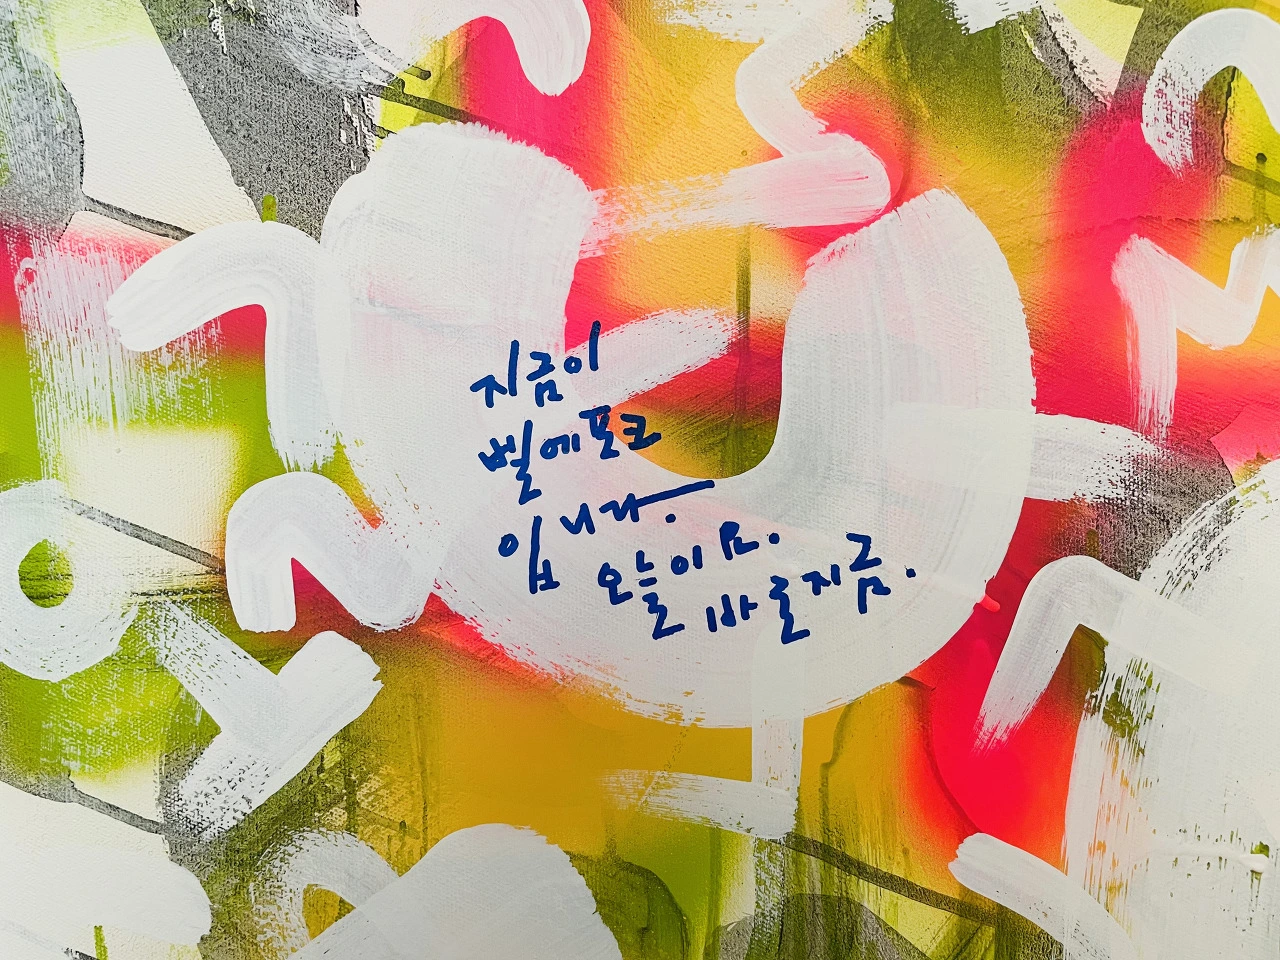 지금이
벨에포크
입니다.
오늘이요.
바로지금.